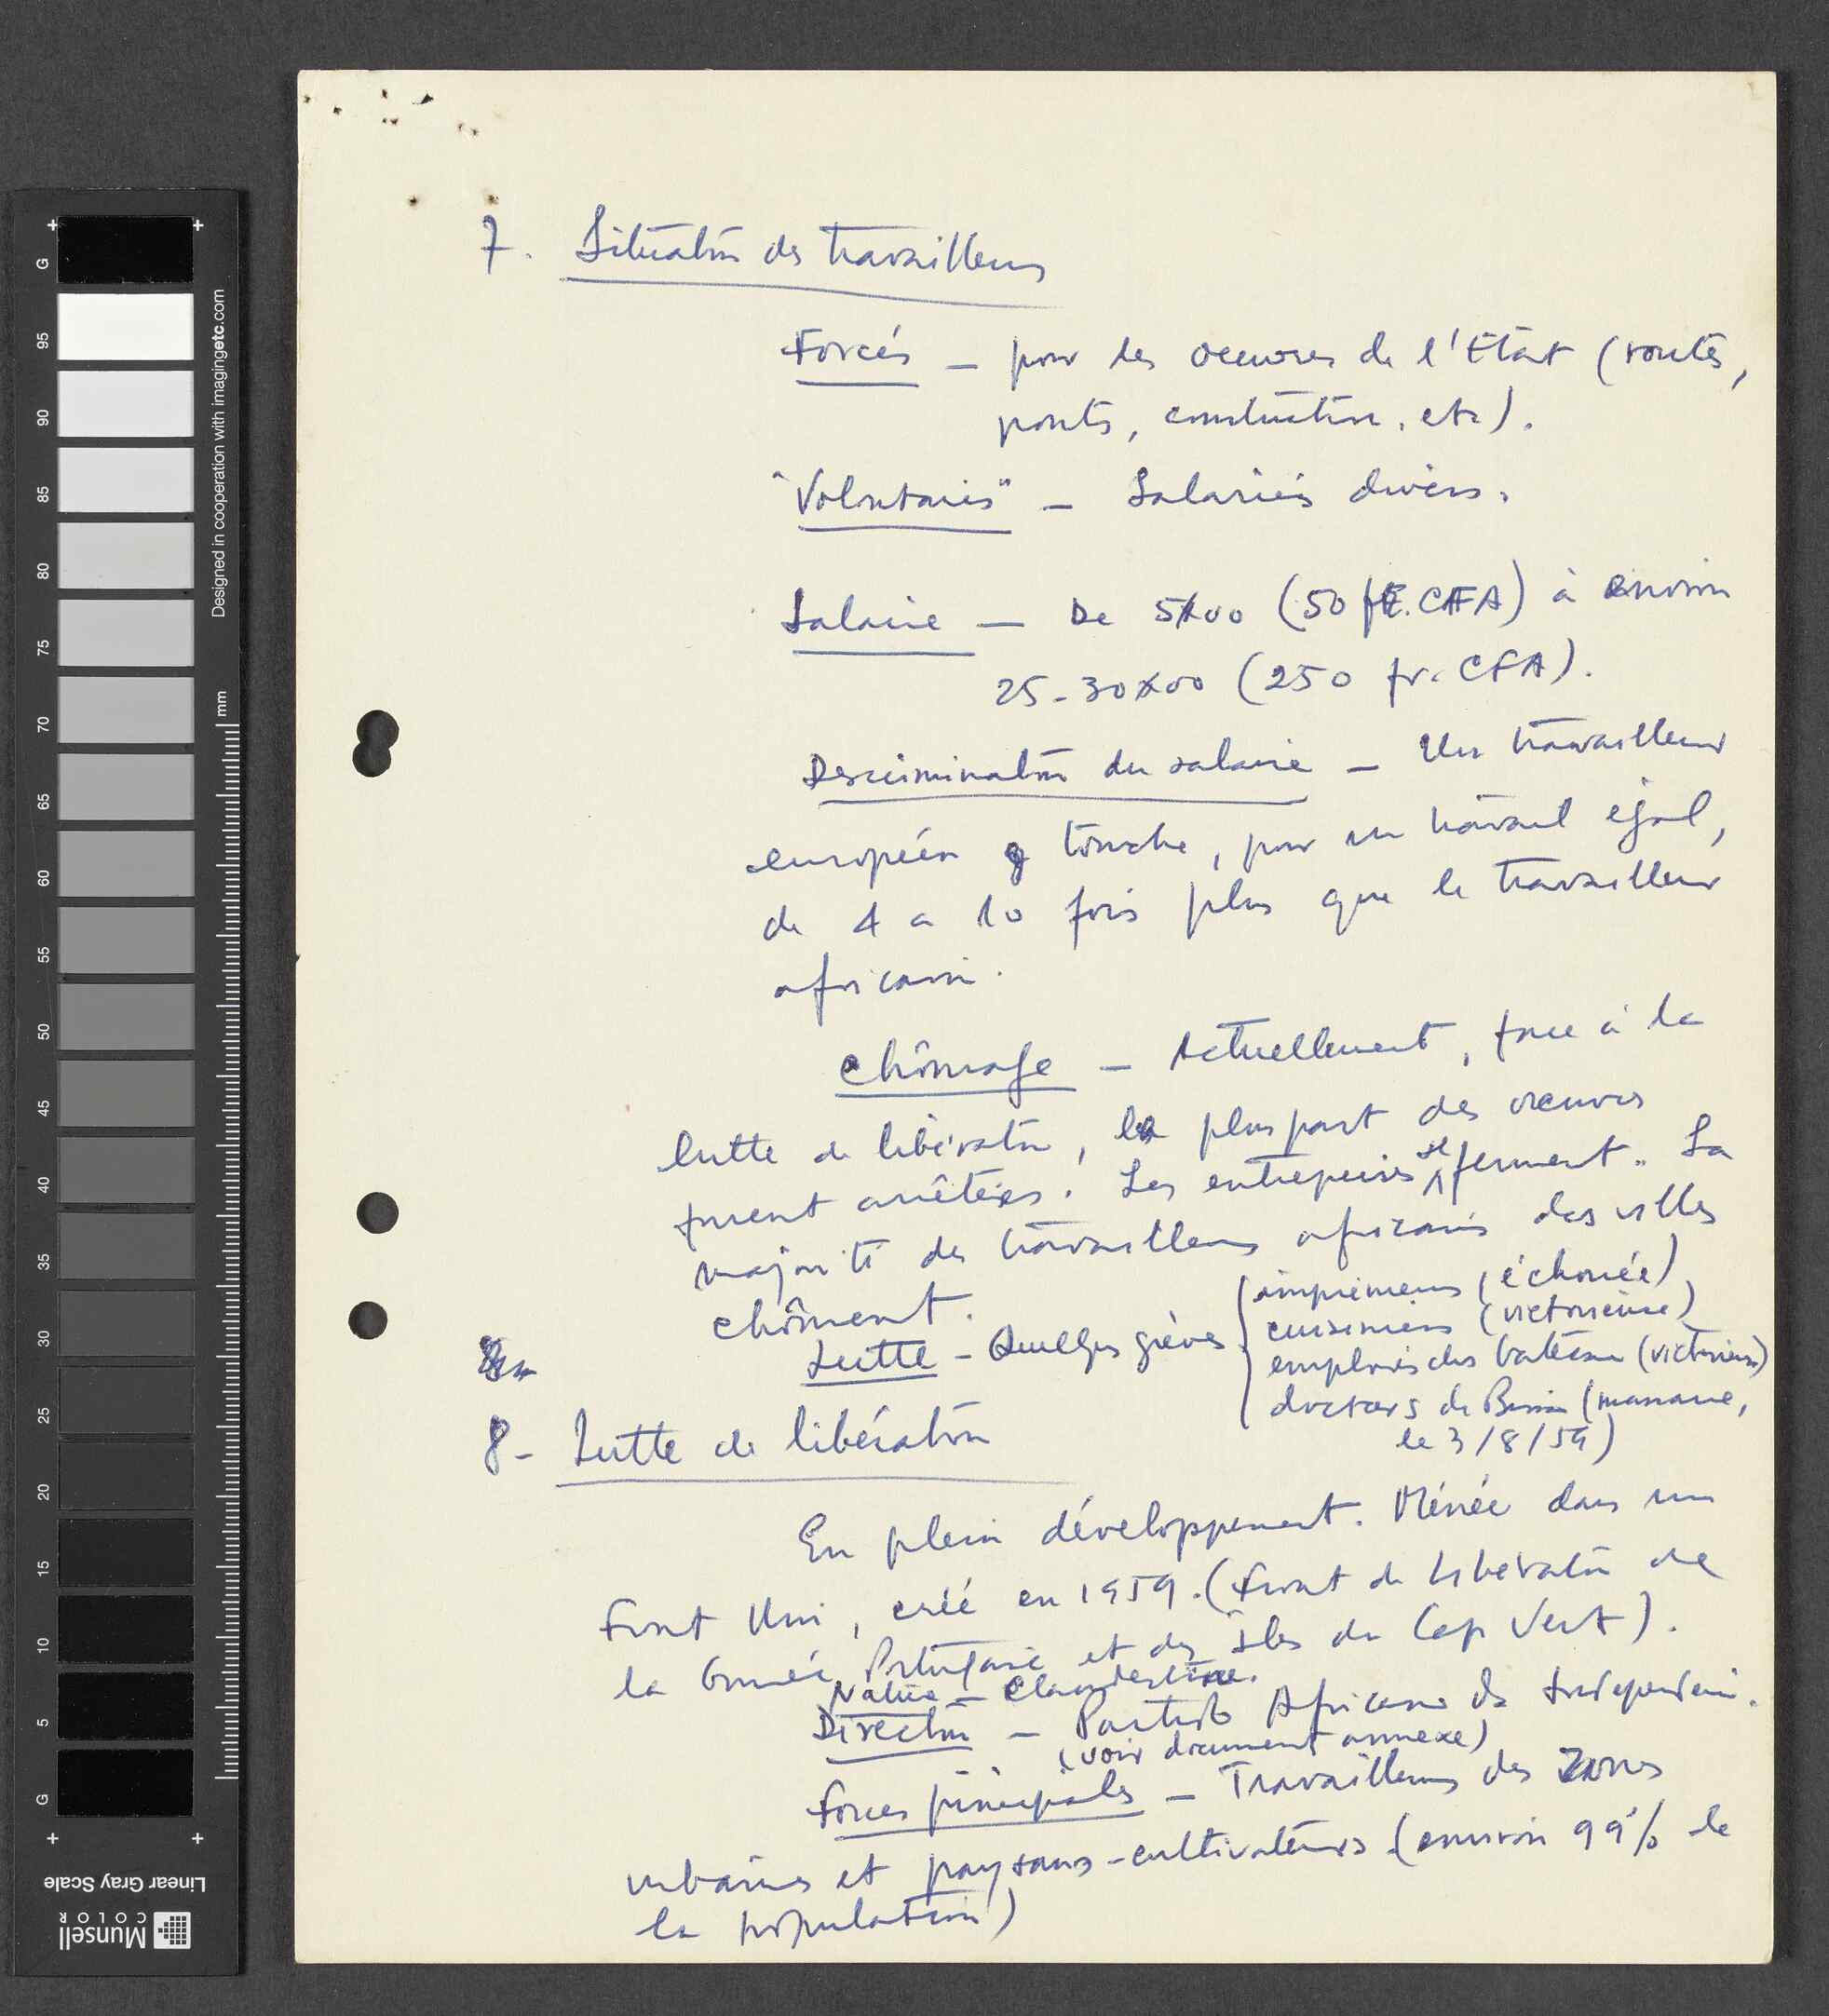 7. Situation des travailleurs
Forcés — pour les oeuvres de l'Etat (routes,
ponts, construction, etc).
"Volontaires" — Salariés divers.
Salaire — De 5$00 (50 fr. CFA) à environ
25-30$00 (250 fr. CFA).
Descrimination du salaire — Un travailleur
européen touche, pour un travail égal,
de 4 a 10 fois plus que le travailleur
africain.
Chômage — Actuellement, face à la
lutte de libération, la pluspart des oeuvres
furent arrêtées. Les entreprises se ferment. La
majorité des travailleurs africains des villes
chôment.
Lutte — Quelques grèves
imprimeurs (échouée)
cuisiniers (victorieuse)
employés des bateaux (victorieuse)
doctors de Bissau (massacre,
le 3/8/59)
8- Lutte de libération
En plein développement. Ménée dans un
Front Uni, créé en 1959. (Front de Libération de
la Guinée Portugaise et des Îles du Cap Vert).
Nature — Clandestine.
Direction — Partido Africano da Independen.
(voir document annexe)
Forces principales — Travailleurs des zones
urbaines et paysans-cultivateurs (environ 99% de
la population)
Designed in cooperation with imagingetc.com
mm
G 95 90 85 80 75 70 65 60 55 50 45 40 35 30 25 20 15 10 5 G
Linear Gray Scale
Munsell
COLOR